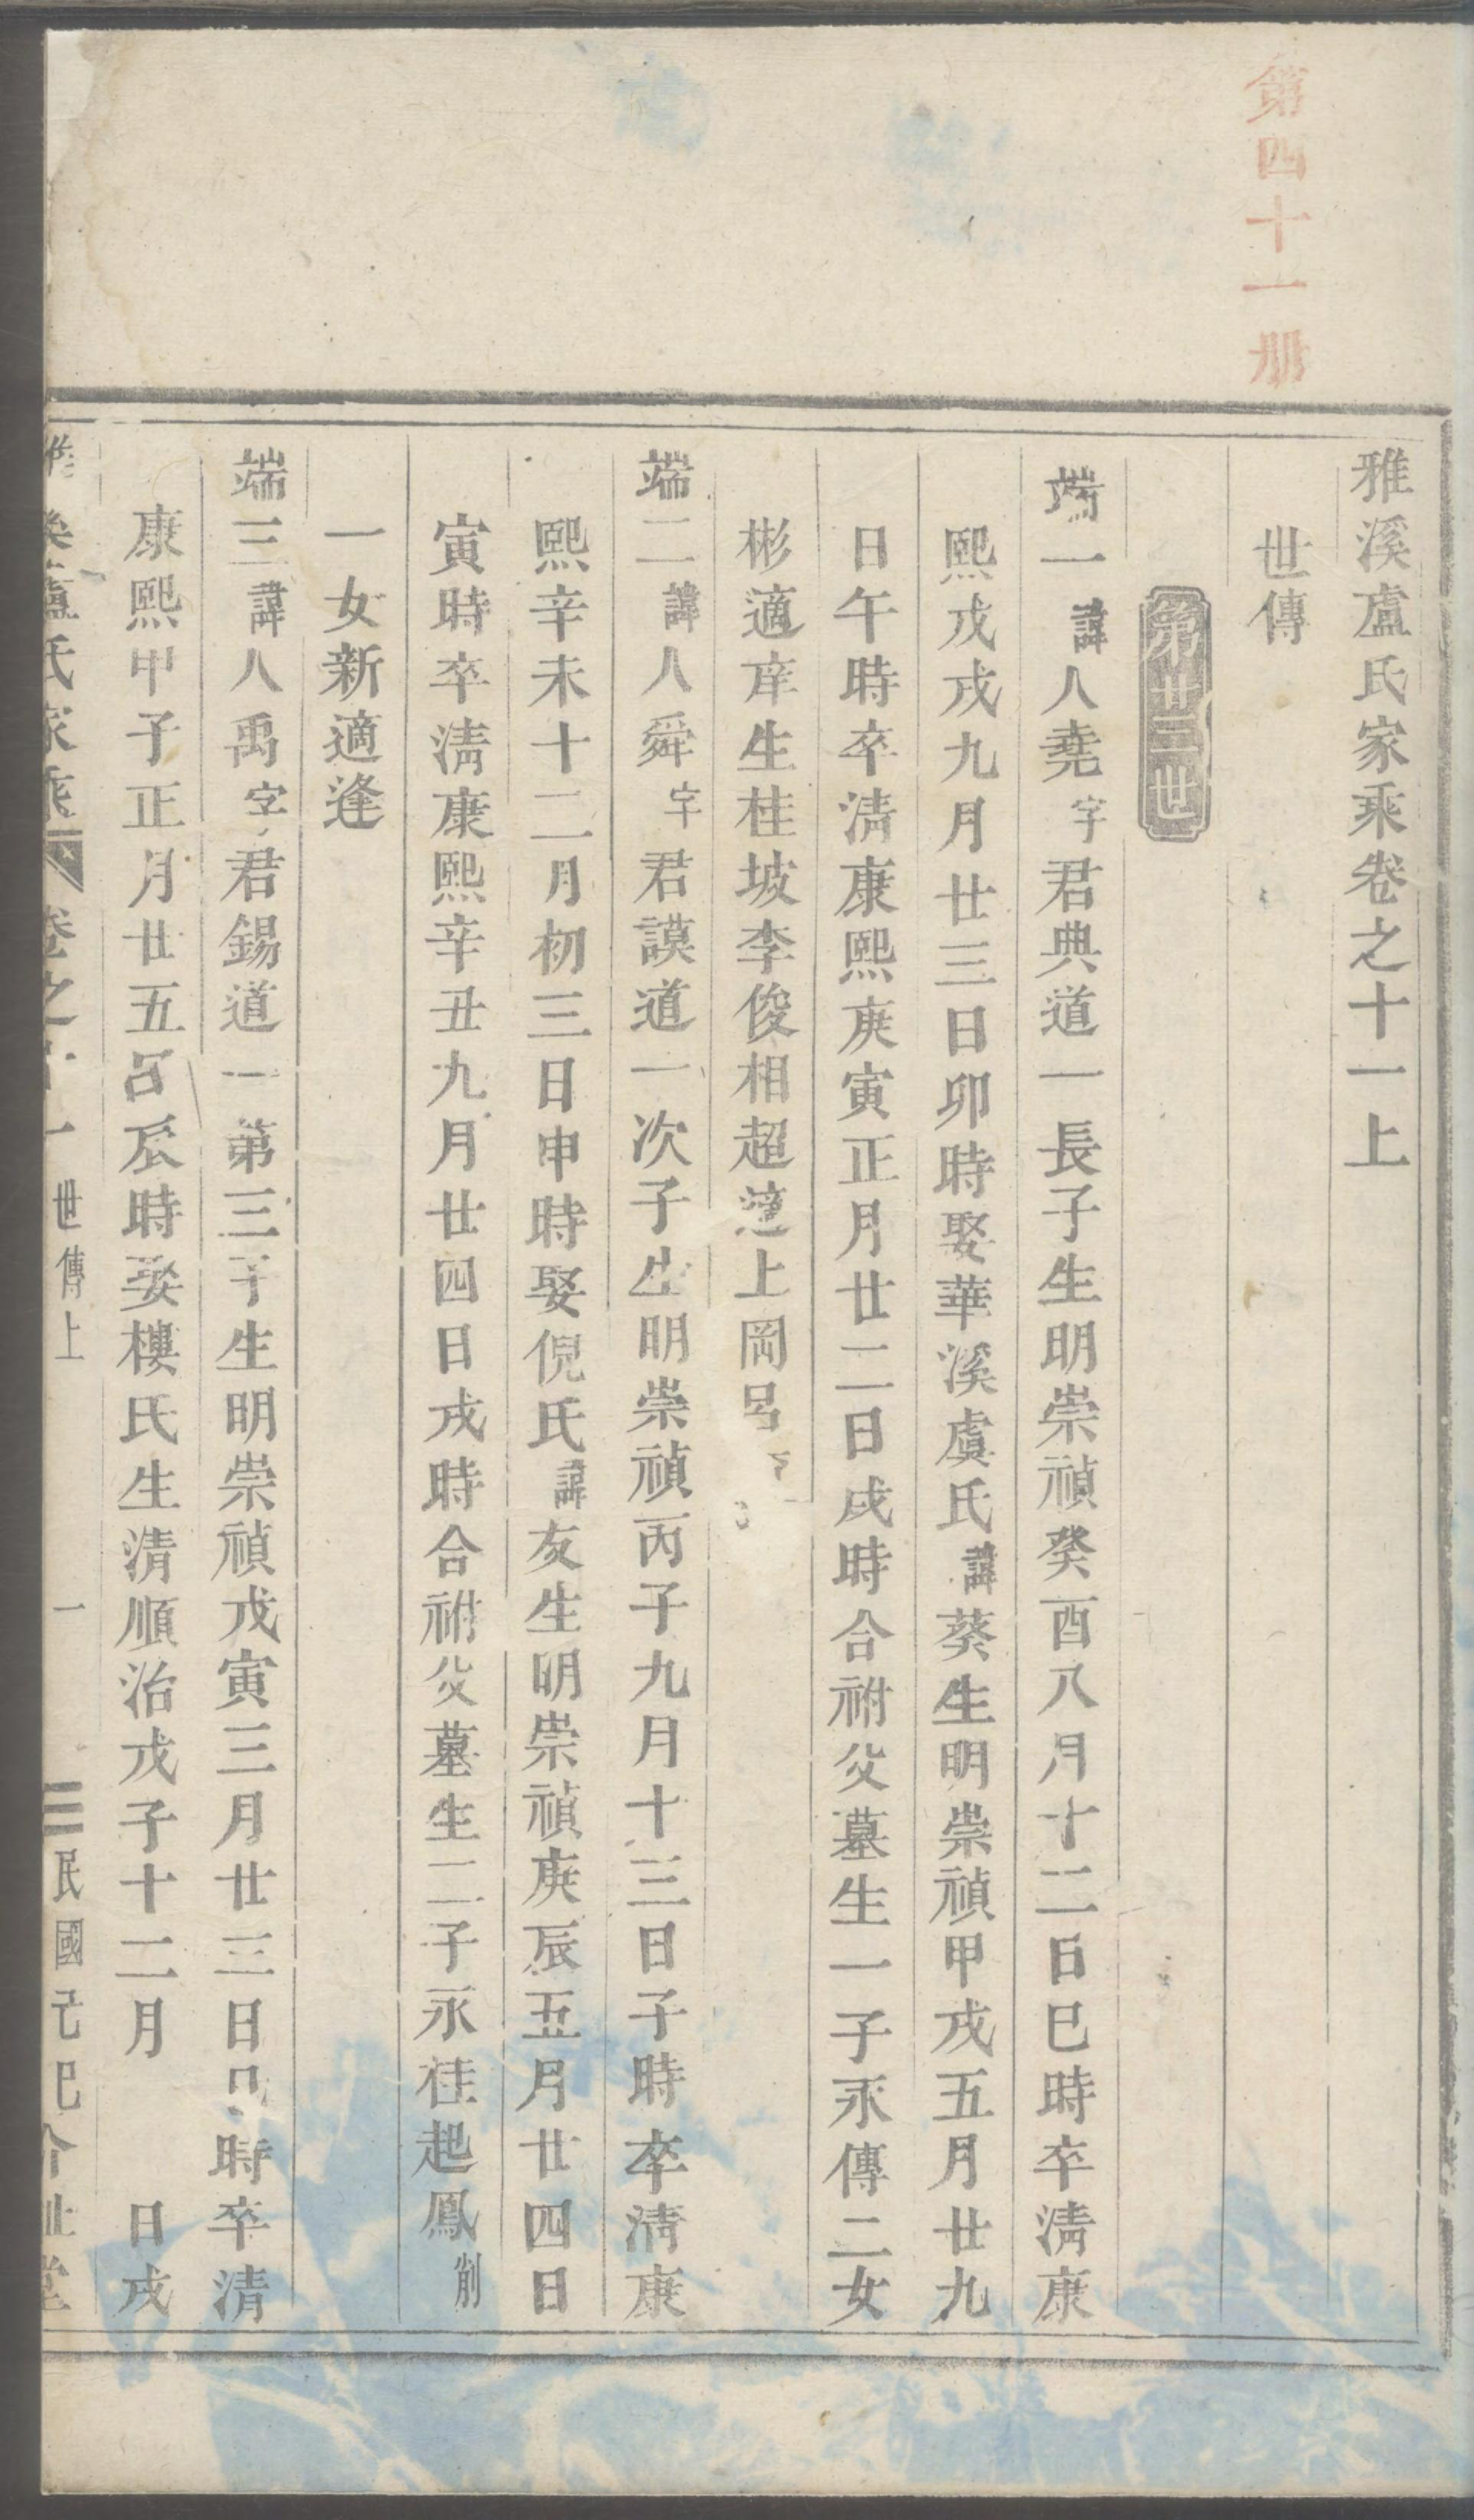 第四十一册
雅溪盧氏家乘卷之十一上
世傳
第廿三世
端一諱人堯字君典道一長子生明崇禎癸酉八月十二日巳時卒清康
熙戊戌九月廿三日卯時娶華溪虞氏諱葵生明崇禎甲戌五月廿九
日午時卒清康熙庚寅正月廿二日戌時合祔父墓生一子永傳二女
彬適庠生桂坡李俊相超適上岡呂
端二諱人舜字君謨道一次子生明崇禎丙子九月十三日子時卒清康
熙辛未十二月初三日申時娶倪氏諱友生明崇禎庚辰五月廿四日
寅時卒清康熙辛丑九月廿四日戌時合祔父墓生二子永桂起鳳削
一女新適逢
端三諱人禹字君錫道一第三子生明崇禎戊寅三月廿三日時卒清
康熙甲子正月廿五日辰時娶樓氏生清順治戊子十二月 日戌
盧氏家乘 卷之十一 世傳上 一 民國己巳